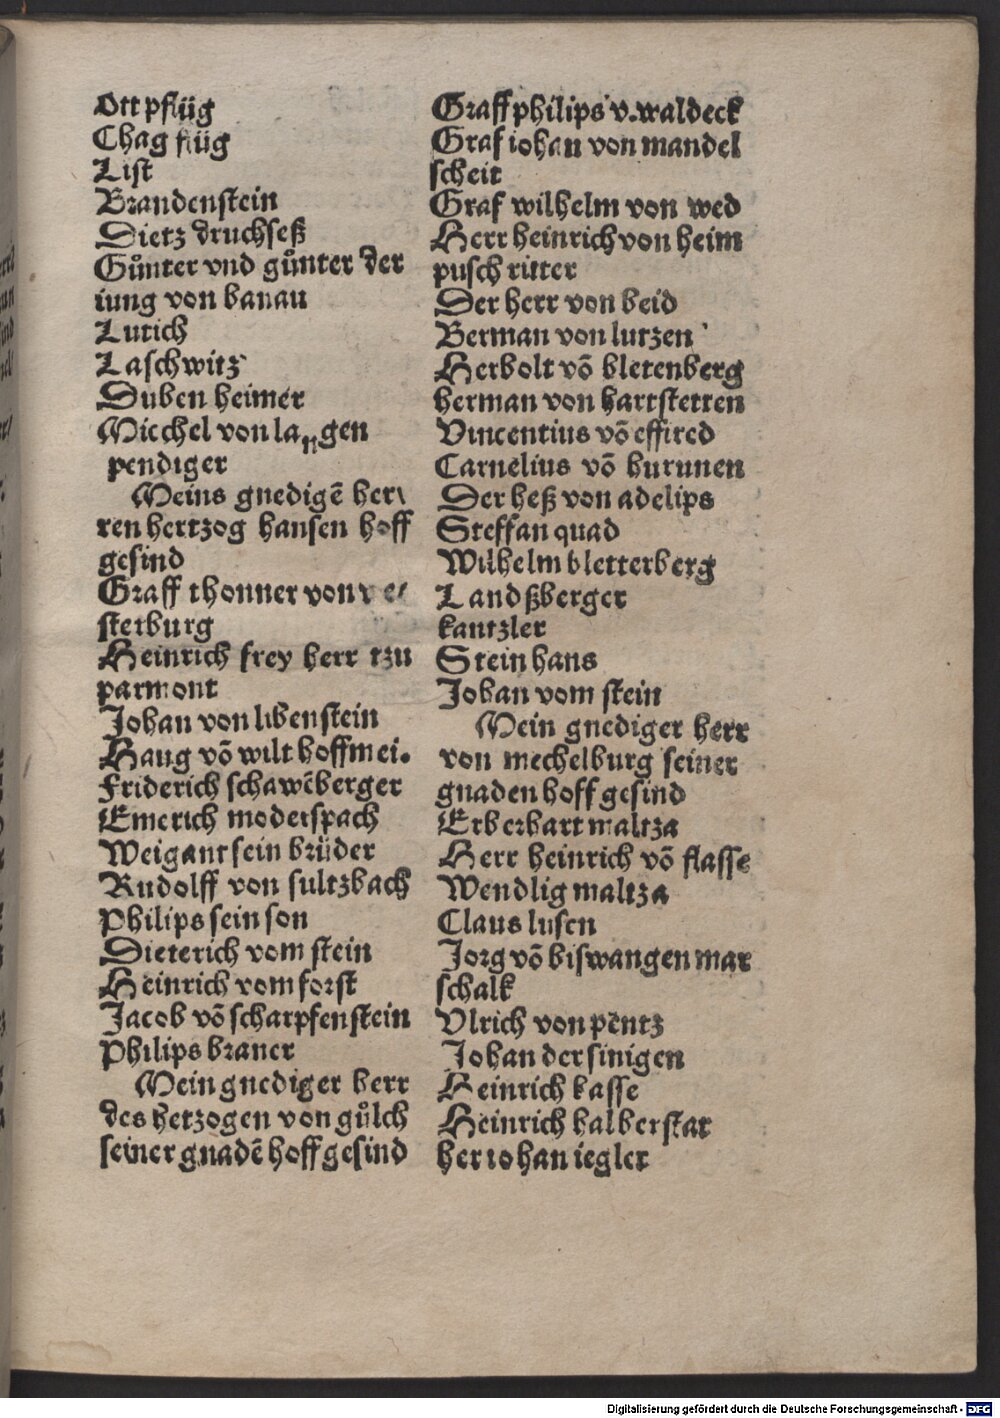 Ott pflüg
Chag flüg
List
Brandenstein
Dietz druchseß
Gůnter vnd gůnter der
iung von banau
Lutich
Laschwitz
Duben heimer
Micchel von langen
pendiger
Meins gnedigẽ her⸗
ren hertzog hansen hoff
gesind
Graff thonner von we⸗
sterburg
Heinrich frey herr tzu
parmont
Johan von libenstein
Haug võ wilt hoffmei.
Friderich schawẽberger
Emerich moderspach
Weigant sein brüder
Rudolff von sultzbach
Philips sein son
Dieterich vom stein
Heinrich vom forst
Jacob võ scharpfenstein
Philips braner
Mein gnediger herr
des hetzogen von gůlch
seiner gnadẽ hoff gesind
Graff philips v. waldeck
Graf iohan von mandel
scheit
Graf wilhelm von wed
Herr heinrich von heim
pusch ritter
Der herr von beid
Berman von lutzen
Herbolt võ bletenberg
herman von hartstetten
Vincentius võ effired
Carnelius võ burunen
Der heß von adelips
Steffan quad
Wilhelm bletterberg
Landßberger
kantzler
Stein hans
Johan vom stein
Mein gnediger herr
von mechelburg seiner
gnaden hoff gesind
Erberhart maltza
Herr heinrich võ flasse
Wendlig maltza
Claus lusen
Jorg võ biswangen mar
schalk
Vlrich von pẽntz
Johan der sinigen
Heinrich kasse
Heinrich halberstat
her iohan iegler
Digitalisierung gefördert durch die Deutsche Forschungsgemeinschaft - DFG